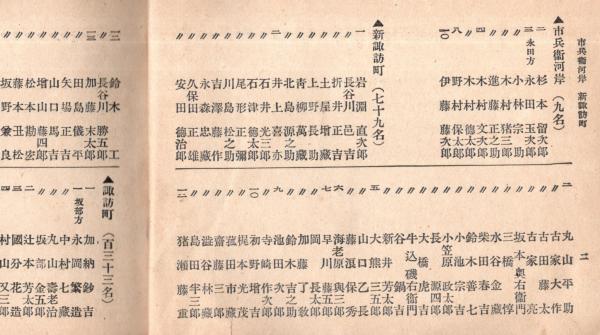 市兵衞河岸 新諏訪町
▲市兵衞河岸（九名）
二 杉本留次郎
三 永田方 永田玉次郎
〃 小林宗
〃 木村猪三郎
〃 進藤正之助
四 木村文次郎
〃 木村文之助
八 野村保太郎
一〇 伊藤藤次郎
▲新諏訪町（七十九名）
一 岩淵直次郎
〃 長谷川邑吉
〃 折井正吉
〃 土屋增藏
〃 上野長藏
〃 青柳萬藏
〃 北島源之助
二 井上喜
〃 石井光三郎
〃 石津德太郎
〃 尾形正彌
〃 川島松之助
〃 吉澤淨藏
〃 永森忠藏
〃 久保田德治郎
〃 安田
二
二 丸山平助
〃 古家大作
〃 古田藤太
〃 古家亮
三 坂本與右衞門
〃 三橋惇
〃 水谷金一郎
〃 柴田春吉
〃 鈴木善七
〃 小池宗七
〃 小笠原政吉
四 長橋源四郎
〃 大橋虎吉
〃 牛込磯右衞門
〃 谷鍋吉
〃 新井芳太郎
五 大熊三太郎
〃 山口乙吉
〃 藤濱
六 海老原與四郎
〃 早川藤五郎
七 岡長數
〃 加藤了
〃 鈴木大助
〃 池田
〃 寺崎作次郎
一〇 初野增吉
〃 梶本光吉
〃 菰田市茂
〃 澁谷藤藏
〃 島田林三郎
一二 猪瀨藤重
一二 鈴木工
〃 長谷川勝五郎
一三 加藤末太郎
〃 田島儀平
〃 矢場正吉
〃 山口馬吉
〃 增山藤四郎
〃 松本勘宏
〃 藤本忠松
〃 坂野兼良
▲諏訪町（百三十三名）
一 加納鈔吉
一 坂部方 永岡繁造
〃 中村七吉
〃 丸山壽老治
〃 坂部金五郎
二 辻本次郎
三 國分花造
四 村山又三